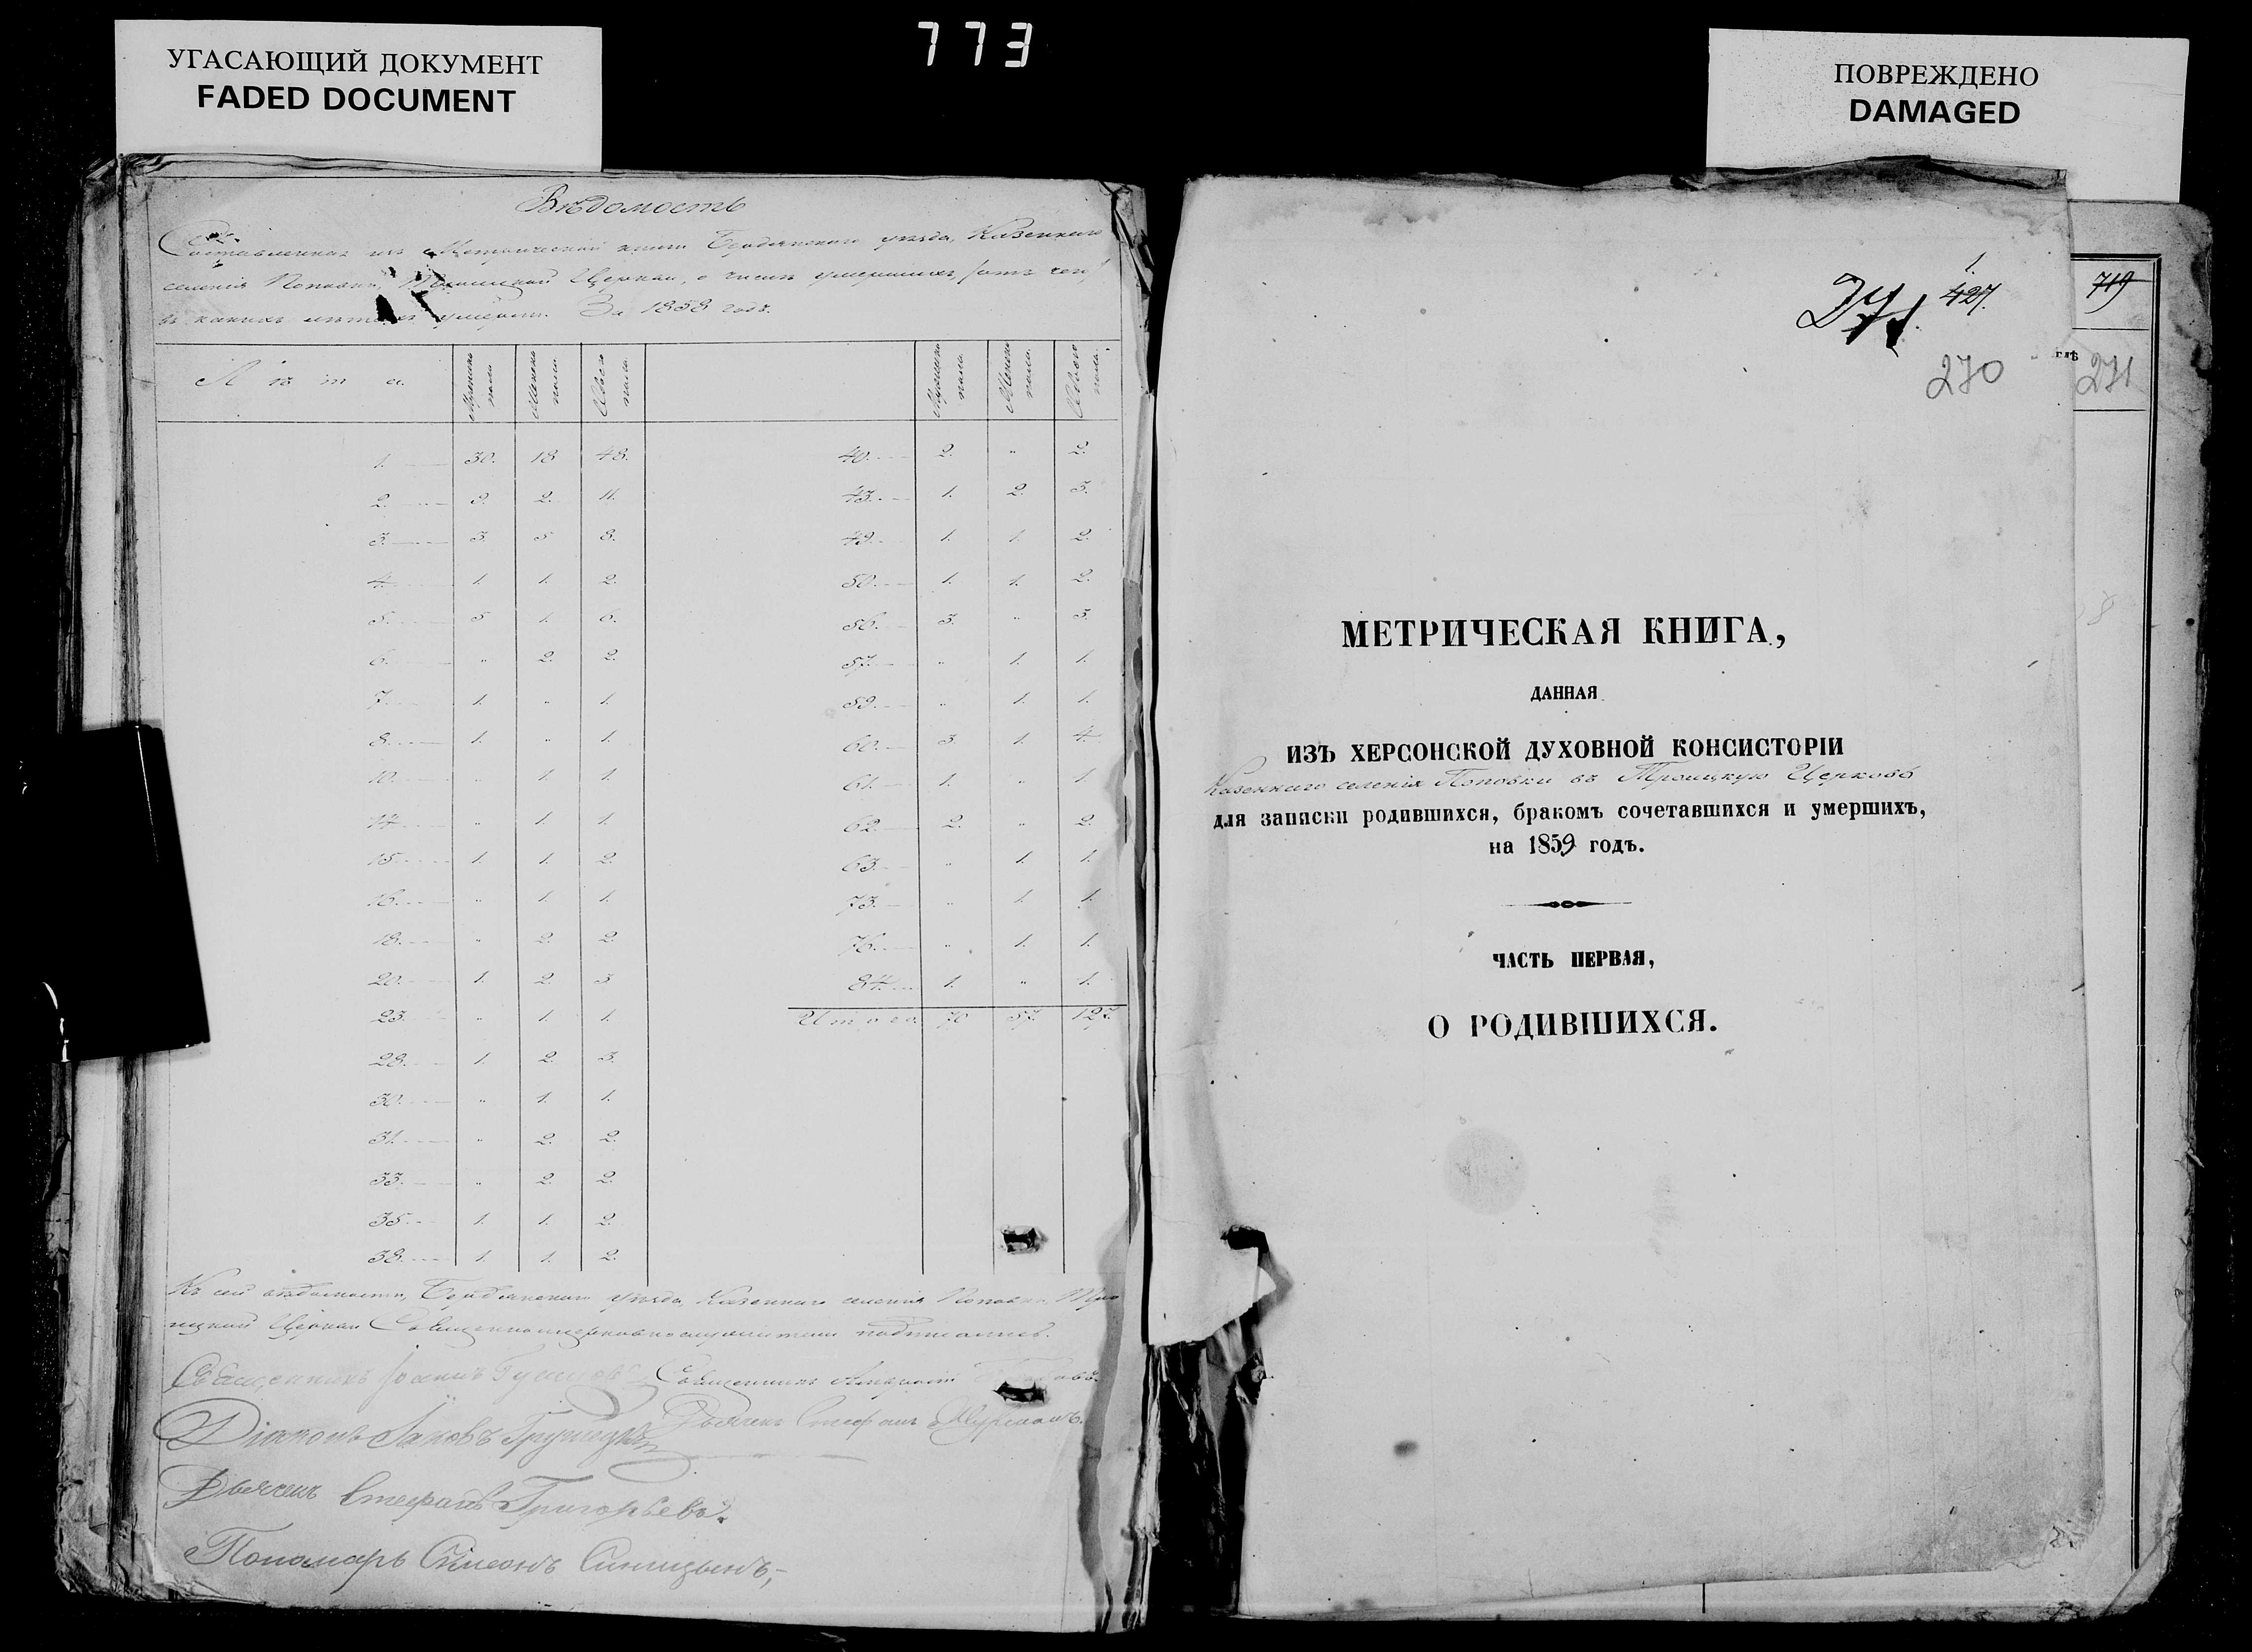 УГАСАЮЩИЙ ДОКУМЕНТ
FADED DOCUMENT
773
ПОВРЕЖДЕНО
DAMAGED
Вѣдомость
Составленная изъ Метрической книги Бердянскаго уѣзда, Казеннаго
селенія Поповки, Троицкой Церкви, о числѣ умершихъ,
въ какихъ лѣтахъ умерли. За 1858 годъ.
Лѣта Мужеска пола Женска пола Обоего пола Мужеска пола Женска пола Обоего пола
1. 30. 18 48. 40. 2. " 2.
2. 9. 2. 11. 43. 1. 2. 3.
3. 3. 5 8. 49. 1. 1. 2.
4. 1. 1. 2. 50. 1. 1. 2.
5. 5 1. 6. 56. 3. " 3.
6. " 2. 2. 57. " 1. 1.
7. 1. " 1. 59. " 1. 1.
8. 1. " 1. 60. 3. 1. 4.
10. " 1. 1. 61. 1. " 1.
14. " 1. 1. 62. 2. " 2.
15. 1. 1. 2. 63. " 1. 1.
16. " 1. 1. 73. " 1. 1.
18. " 2. 2. 76. " 1. 1.
20. 1. 2. 3 84. 1. " 1.
23. " 1. 1. Итого 70 57. 127.
28. 1. 2. 3.
30. " 1. 1.
31. " 2. 2.
33. " 2. 2.
35. 1. 1. 2.
38. 1. 1. 2.
Къ сей вѣдомости, Бердянскаго уѣзда, Казеннаго селенія Поповки, Тро
ицкой Церкви Священноцерковнослужители подписались.
Священникъ Іоаннъ Священникъ
Діаконъ Іаковъ Дьячекъ Стефанъ
Дьячекъ Стефанъ Григорьевъ.
Пономарь Симеонъ Синицынъ,
1
427.
270
719
271
МЕТРИЧЕСКАЯ КНИГА,
ДАННАЯ
ИЗЪ ХЕРСОНСКОЙ ДУХОВНОЙ КОНСИСТОРІИ
Казеннаго селенія Поповки въ Троицкую Церковь
для записки родившихся, бракомъ сочетавшихся и умершихъ,
на 1859 годъ.
ЧАСТЬ ПЕРВАЯ,
О РОДИВШИХСЯ.